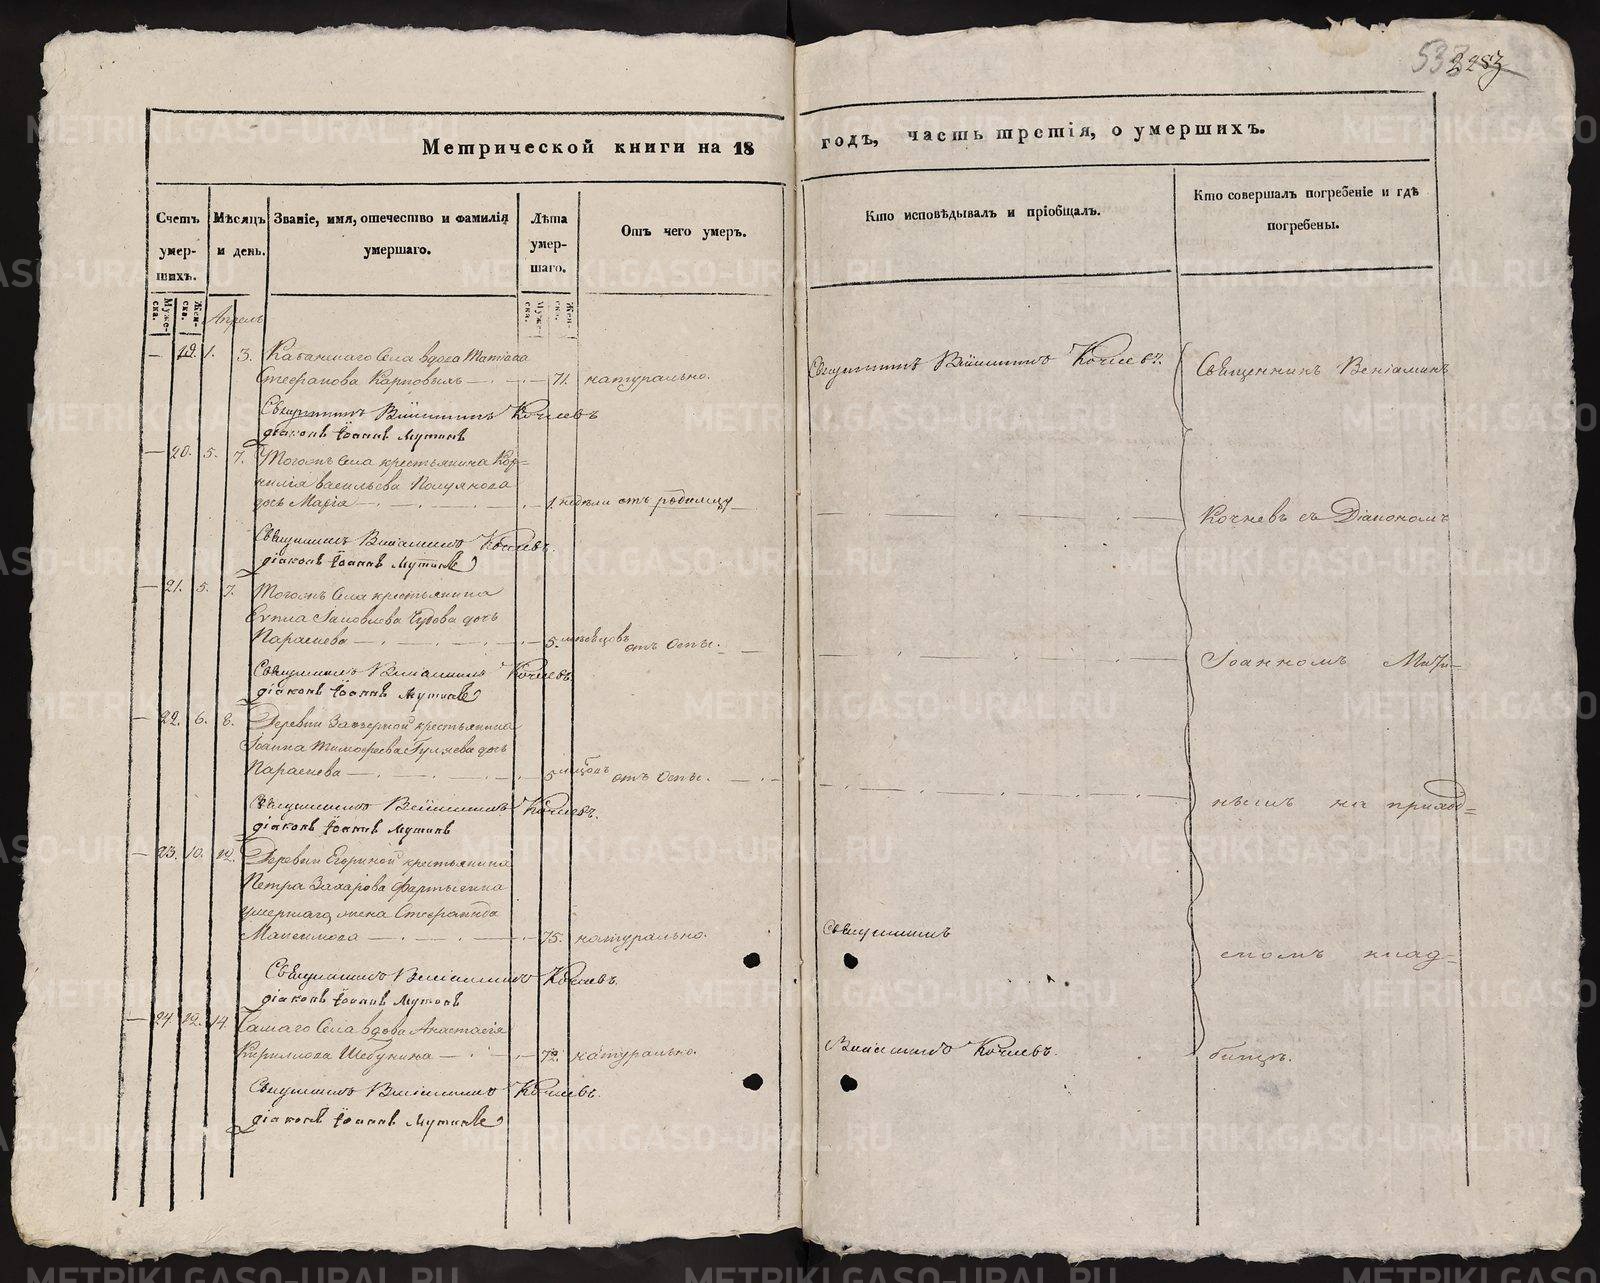 533 2283
Метрической книги на 18 годъ, часть третія, о умершихъ.
Счетъ умер-шихъ.
Мѣсяцъ и день.
Званіе, имя, отечество и фамилія умершаго.
Лѣта умер-шаго.
Отъ чего умеръ.
Кто исповѣдывалъ и пріобщалъ.
Кто совершалъ погребеніе и гдѣ погребены.
Муже-ска.
Жен-ска.
Муже-ска.
Жен-ска.
Апрель
— 19. 1. 3. села вдова
Стефанова — 71. натурально.
Священникъ Веніаминъ Кочневъ.
Священникъ Веніаминъ Кочневъ
діаконъ Іоаннъ Мутинъ
— 20. 5. 7. Тогожъ села крестьянина Кор-
нилія Васильева
дочь Марія — 1. недели отъ родимцу
Священникъ Веніаминъ Кочневъ.
діаконъ Іоаннъ Мутинъ
— 21. 5. 7. Тогожъ села крестьянина
Яковлева Чудова дочь
Параскева — 5. месяцовъ отъ оспы.
Священникъ Веніаминъ Кочневъ
діаконъ Іоаннъ Мутинъ
— 22. 6. 8. Деревни Заозерной крестьянина
Іоанна Тимофеева Гуляева дочь
Параскева — 5 месяцовъ отъ оспы.
Священникъ Веніаминъ Кочневъ.
діаконъ Іоаннъ Мутинъ
— 23. 10. 12. Деревни Егориной крестьянина
Петра Захарова Фертикова
умершаго жена Стефанида
Максимова — 75. натурально.
Священникъ Веніаминъ Кочневъ.
діаконъ Іоаннъ Мутинъ
— 24 12. 14. села вдова Анастасія
Кириллова Шебунина — 72. натурально.
Священникъ Веніаминъ Кочневъ.
діаконъ Іоаннъ Мутинъ
Священникъ
Веніаминъ Кочневъ.
Священникъ Веніаминъ
Кочневъ съ Діакономъ
Іоанномъ Мути-
нымъ на приход-
скомъ клад-
бищѣ.
METRIKI.GASO-URAL.RU